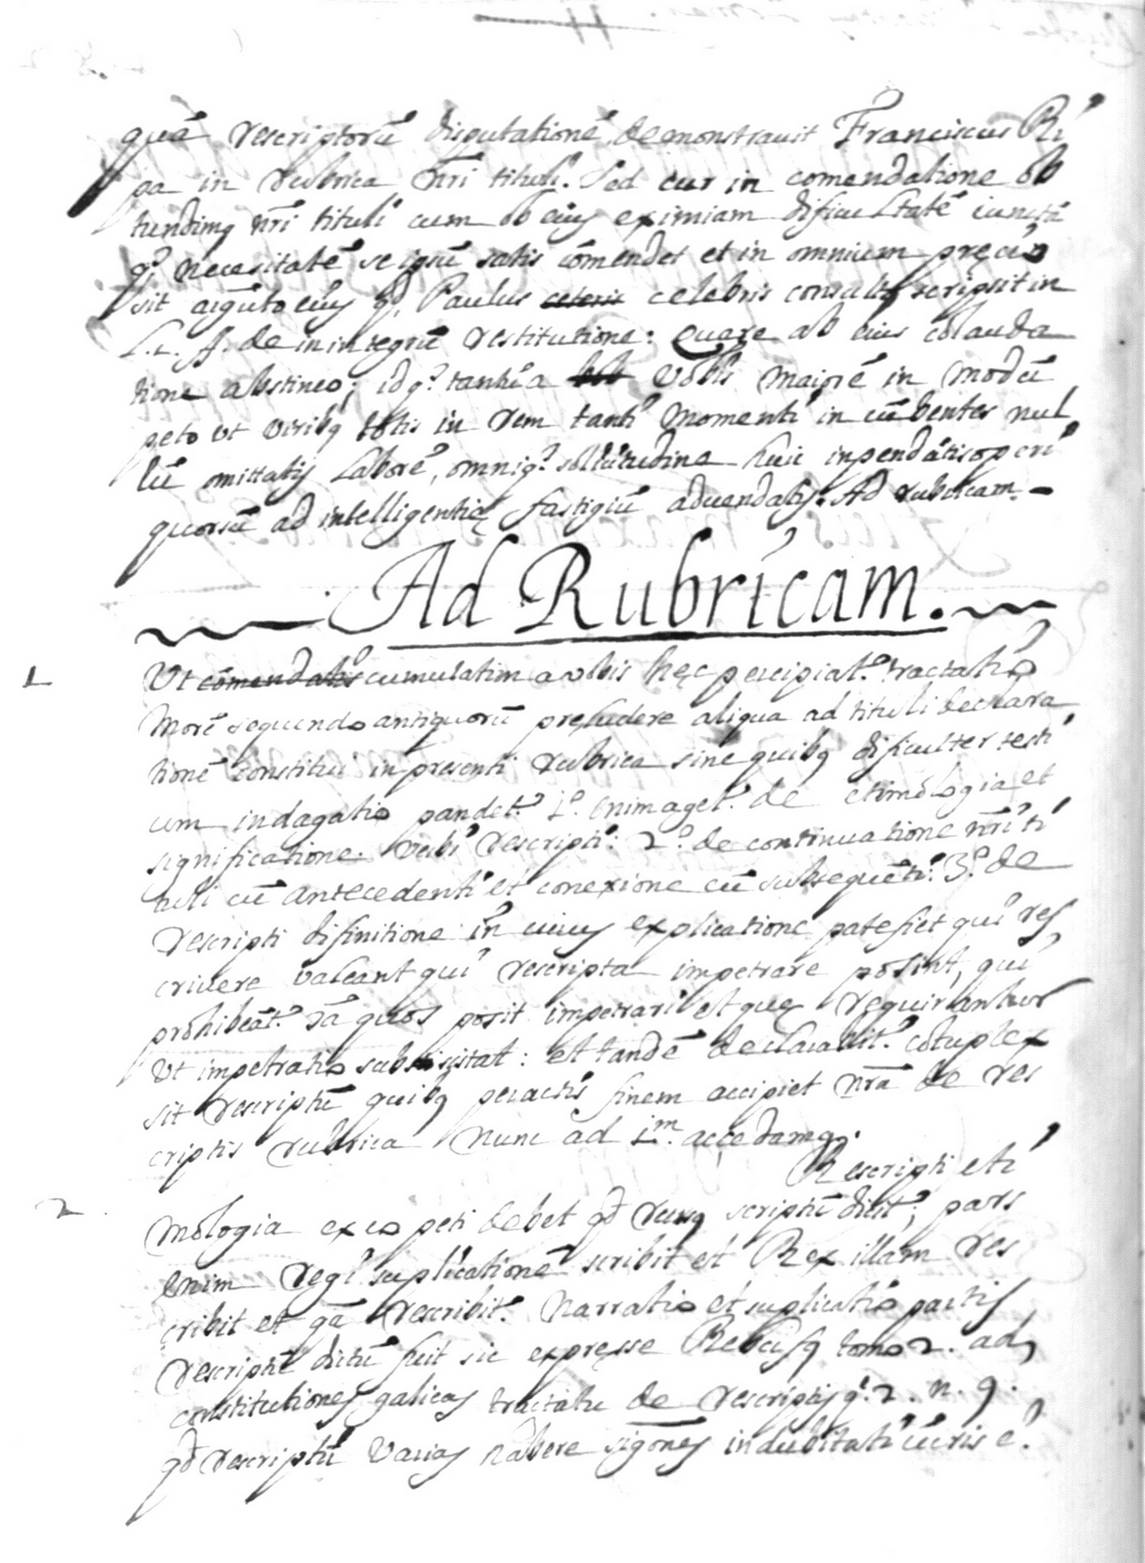 quā rescriptorū disputationē demonstravit Franciscus Ri
pa in rubrica nr̄i tituli. Sed cur in comendatione ob
tundimq nr̄i tituli cum ob eiq eximiam dificultatē iunctā
q.̉ necesitatē se ipsū satis cōmendet et in omnium precio
sit Paulus celebris scripsit in
L. 2. ff. de in integrū restitutione: quare ab eius colauda
tione abstineo; idq.̉ tantū a vobis maiorē in modū
peto ut viribq totis in rem tanti momenti in cūbentes nul
lū omittatis laborē, omniq.̉ sollicitudine huic inpendātis operi
quorsū ad intelligentię fastigiū advendatis. Ad rubricam.
Ad Rubricam.
1 Ut cōmendatio cumulatim a vobis hęc percipiat.̉ tractatio
morē sequendo antiquorū preludere aliqua ad tituli declara
tionē constitui in presenti rubrica sine quibq dificulter testi
um indagatio pandet.̉ 1.º enim aget.̉ de etimologia et
significatione verbi rescripti: 2.º de continuatione nr̄i ti
tuli cū antecedenti et conexione cū subsequēti: 3.º de
rescripti difinitione in cuius explicatione patefiet qui res
crivere valeant qui rescripta impetrare posint, qui
prohibeāt.̉ quos posit impetrari et quę requirantur
ut impetratio subsistat: et tandē declarabit.̉ cotuplex
sit rescriptū quibq peractis finem accipiet nr̄a de res
criptis rubrica nunc ad 1.m accedamq.
2 Rescripti eti
mologia ex eo peti debet qd rursq scriptū dicit.̉; pars
enim regi suplicationē scribit et Rex illam res
cribit et qā rescribit.̉ narratio et suplicatio partis
rescriptū dictū fuit sic expresse Rebufq tomo 2. ad
constitutiones galicas tractatu de rescriptis q. 2. n. 9.
qd rescriptū varias habere sig̅ones indubitati iūris ē.